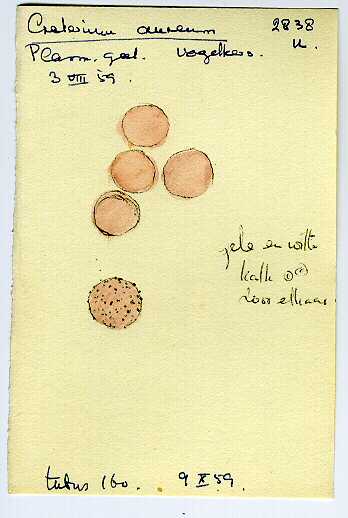 Craterium aureum 2838
Plasm. gecl. Vogelkers. u.
3 VIII 59.
gele en witte
kalk
door elkaar.
tubus 160. 9 X 59.